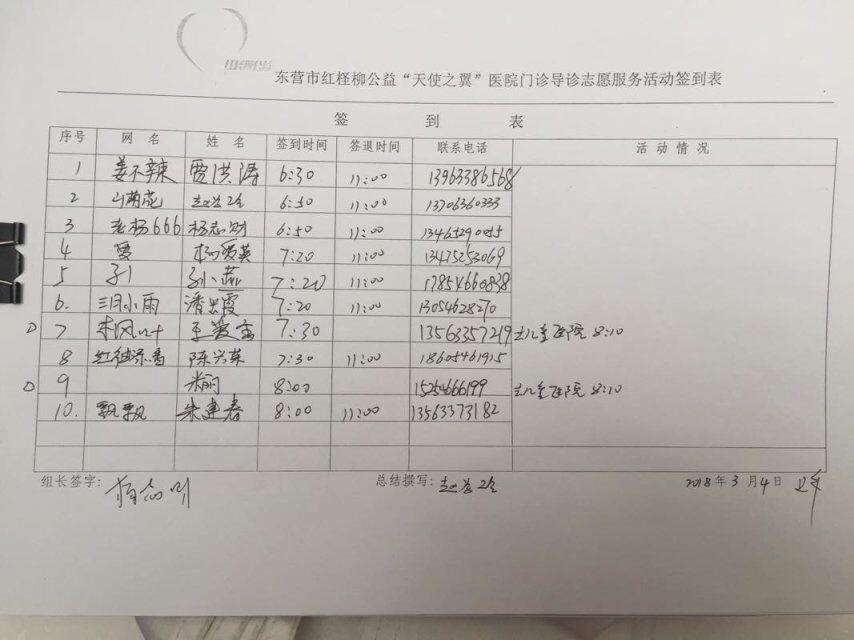 东营市红柽柳公益“天使之翼”医院门诊导诊志愿服务活动签到表
签 到 表
序号 网 名 姓 名 签到时间 签退时间 联系电话 活 动 情 况
1 姜不辣 贾洪涛 6:30 11:00 13963386568
2 山菊花 6:50 11:00 13706360333
3 老杨666 杨志刚 6:50 11:00 13465290055
4 爱 杨爱英 7:20 11:00 13475253069
5 孙 孙燕 7:20 11:00 17854660838
6. 三月小雨 潘忠霞 7:20 11:00 13054628270
7 东风 王爱 7:30 13563357219 去儿童医院 8:10
8 陈兴英 7:30 11:00 18605461915
9 米丽 8:00 15254666199 去儿童医院 8:10
10. 飘飘 朱建春 8:00 11:00 13563373182
组长签字: 杨志刚 总结撰写: 2018年3月4日 上午